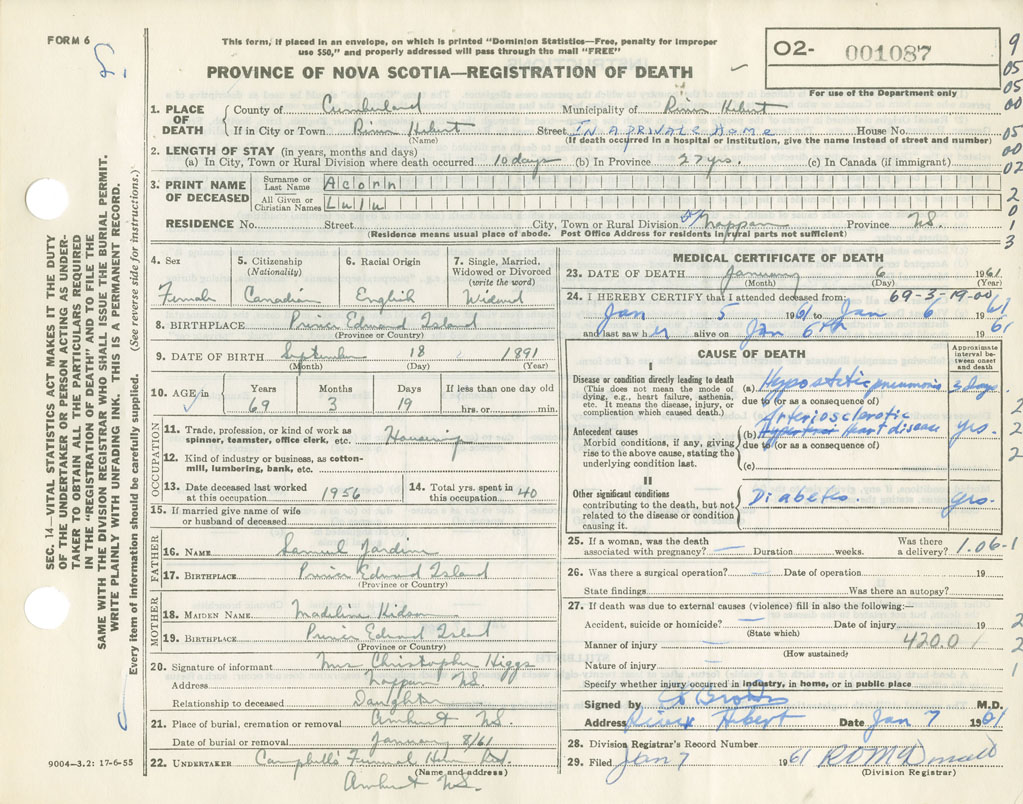 FORM 6
8.
This form, if placed in an envelope, on which is printed "Dominion Statistics—Free, penalty for improper
use $50," and properly addressed will pass through the mail "FREE"
PROVINCE OF NOVA SCOTIA—REGISTRATION OF DEATH
O2- 001087
For use of the Department only
9
05
05
00
05
00
02
2
0
1
3
SEC. 14—VITAL STATISTICS ACT MAKES IT THE DUTY
OF THE UNDERTAKER OR PERSON ACTING AS UNDER-
TAKER TO OBTAIN ALL THE PARTICULARS REQUIRED
IN THE "REGISTRATION OF DEATH" AND TO FILE THE
SAME WITH THE DIVISION REGISTRAR WHO SHALL ISSUE THE BURIAL PERMIT.
WRITE PLAINLY WITH UNFADING INK. THIS IS A PERMANENT RECORD.
Every item of information should be carefully supplied. (See reverse side for instructions.)
1. PLACE OF DEATH
County of Cumberland Municipality of River Hebert
If in City or Town River Hebert Street IN A PRIVATE HOME House No.
(Name) (If death occurred in a hospital or institution, give the name instead of street and number)
2. LENGTH OF STAY (in years, months and days)
(a) In City, Town or Rural Division where death occurred 10 days (b) In Province 27 yrs. (c) In Canada (if immigrant)
3. PRINT NAME OF DECEASED
Surname or Last Name Acorn
All Given or Christian Names Lulu
RESIDENCE No. Street City, Town or Rural Division Nappan Province N.S.
(Residence means usual place of abode. Post Office Address for residents in rural parts not sufficient)
4. Sex
Female
5. Citizenship
(Nationality)
Canadian
6. Racial Origin
English
7. Single, Married,
Widowed or Divorced
(write the word)
Widowed
8. BIRTHPLACE Prince Edward Island
(Province or Country)
9. DATE OF BIRTH September 18 1891
(Month) (Day) (Year)
10. AGE in Years Months Days If less than one day old
69 3 19 hrs. or min.
OCCUPATION
11. Trade, profession, or kind of work as
spinner, teamster, office clerk, etc. Housewife
12. Kind of industry or business, as cotton-
mill, lumbering, bank, etc.
13. Date deceased last worked
at this occupation 1956
14. Total yrs. spent in
this occupation 40
15. If married give name of wife
or husband of deceased
FATHER
16. NAME Samuel Jardine
17. BIRTHPLACE Prince Edward Island
(Province or Country)
MOTHER
18. MAIDEN NAME Madeline
19. BIRTHPLACE Prince Edward Island
(Province or Country)
20. Signature of informant Mrs Christopher Higgs
Address Nappan N.S.
Relationship to deceased Daughter
21. Place of burial, cremation or removal Amherst N.S.
Date of burial or removal January 8/61
22. UNDERTAKER Campbells Funeral Home Ltd.
(Name and address)
Amherst N.S.
9004—3.2: 17-6-55
MEDICAL CERTIFICATE OF DEATH
23. DATE OF DEATH January 6 1961
(Month) (Day) (Year)
24. I HEREBY CERTIFY that I attended deceased from: 69-3-19-00
Jan 5 1961 to Jan 6 1961
and last saw her alive on Jan 6th 1961
CAUSE OF DEATH
Approximate
interval be-
tween onset
and death
I
Disease or condition directly leading to death
(This does not mean the mode of
dying, e.g., heart failure, asthenia,
etc. It means the disease, injury, or
complication which caused death.)
(a) Hypostatic pneumonia 2 days.
due to (or as a consequence of)
Arteriosclerotic
Antecedent causes
Morbid conditions, if any, giving
rise to the above cause, stating the
underlying condition last.
(b) heart disease yrs.
due to (or as a consequence of)
(c)
II
Other significant conditions
contributing to the death, but not
related to the disease or condition
causing it.
Diabetes. yrs.
2
2
2
25. If a woman, was the death
associated with pregnancy? — Duration weeks.
Was there
a delivery? 1.06-1
26. Was there a surgical operation? — Date of operation 19
State findings Was there an autopsy?
27. If death was due to external causes (violence) fill in also the following:—
Accident, suicide or homicide? — Date of injury 19 2
(State which)
Manner of injury — 420.0 1 2
(How sustained)
Nature of injury — 1
Specify whether injury occurred in industry, in home, or in public place
Signed by M.D.
Address River Hebert Date Jan 7 1961
28. Division Registrar's Record Number
29. Filed Jan 7 1961 McDonald
(Division Registrar)